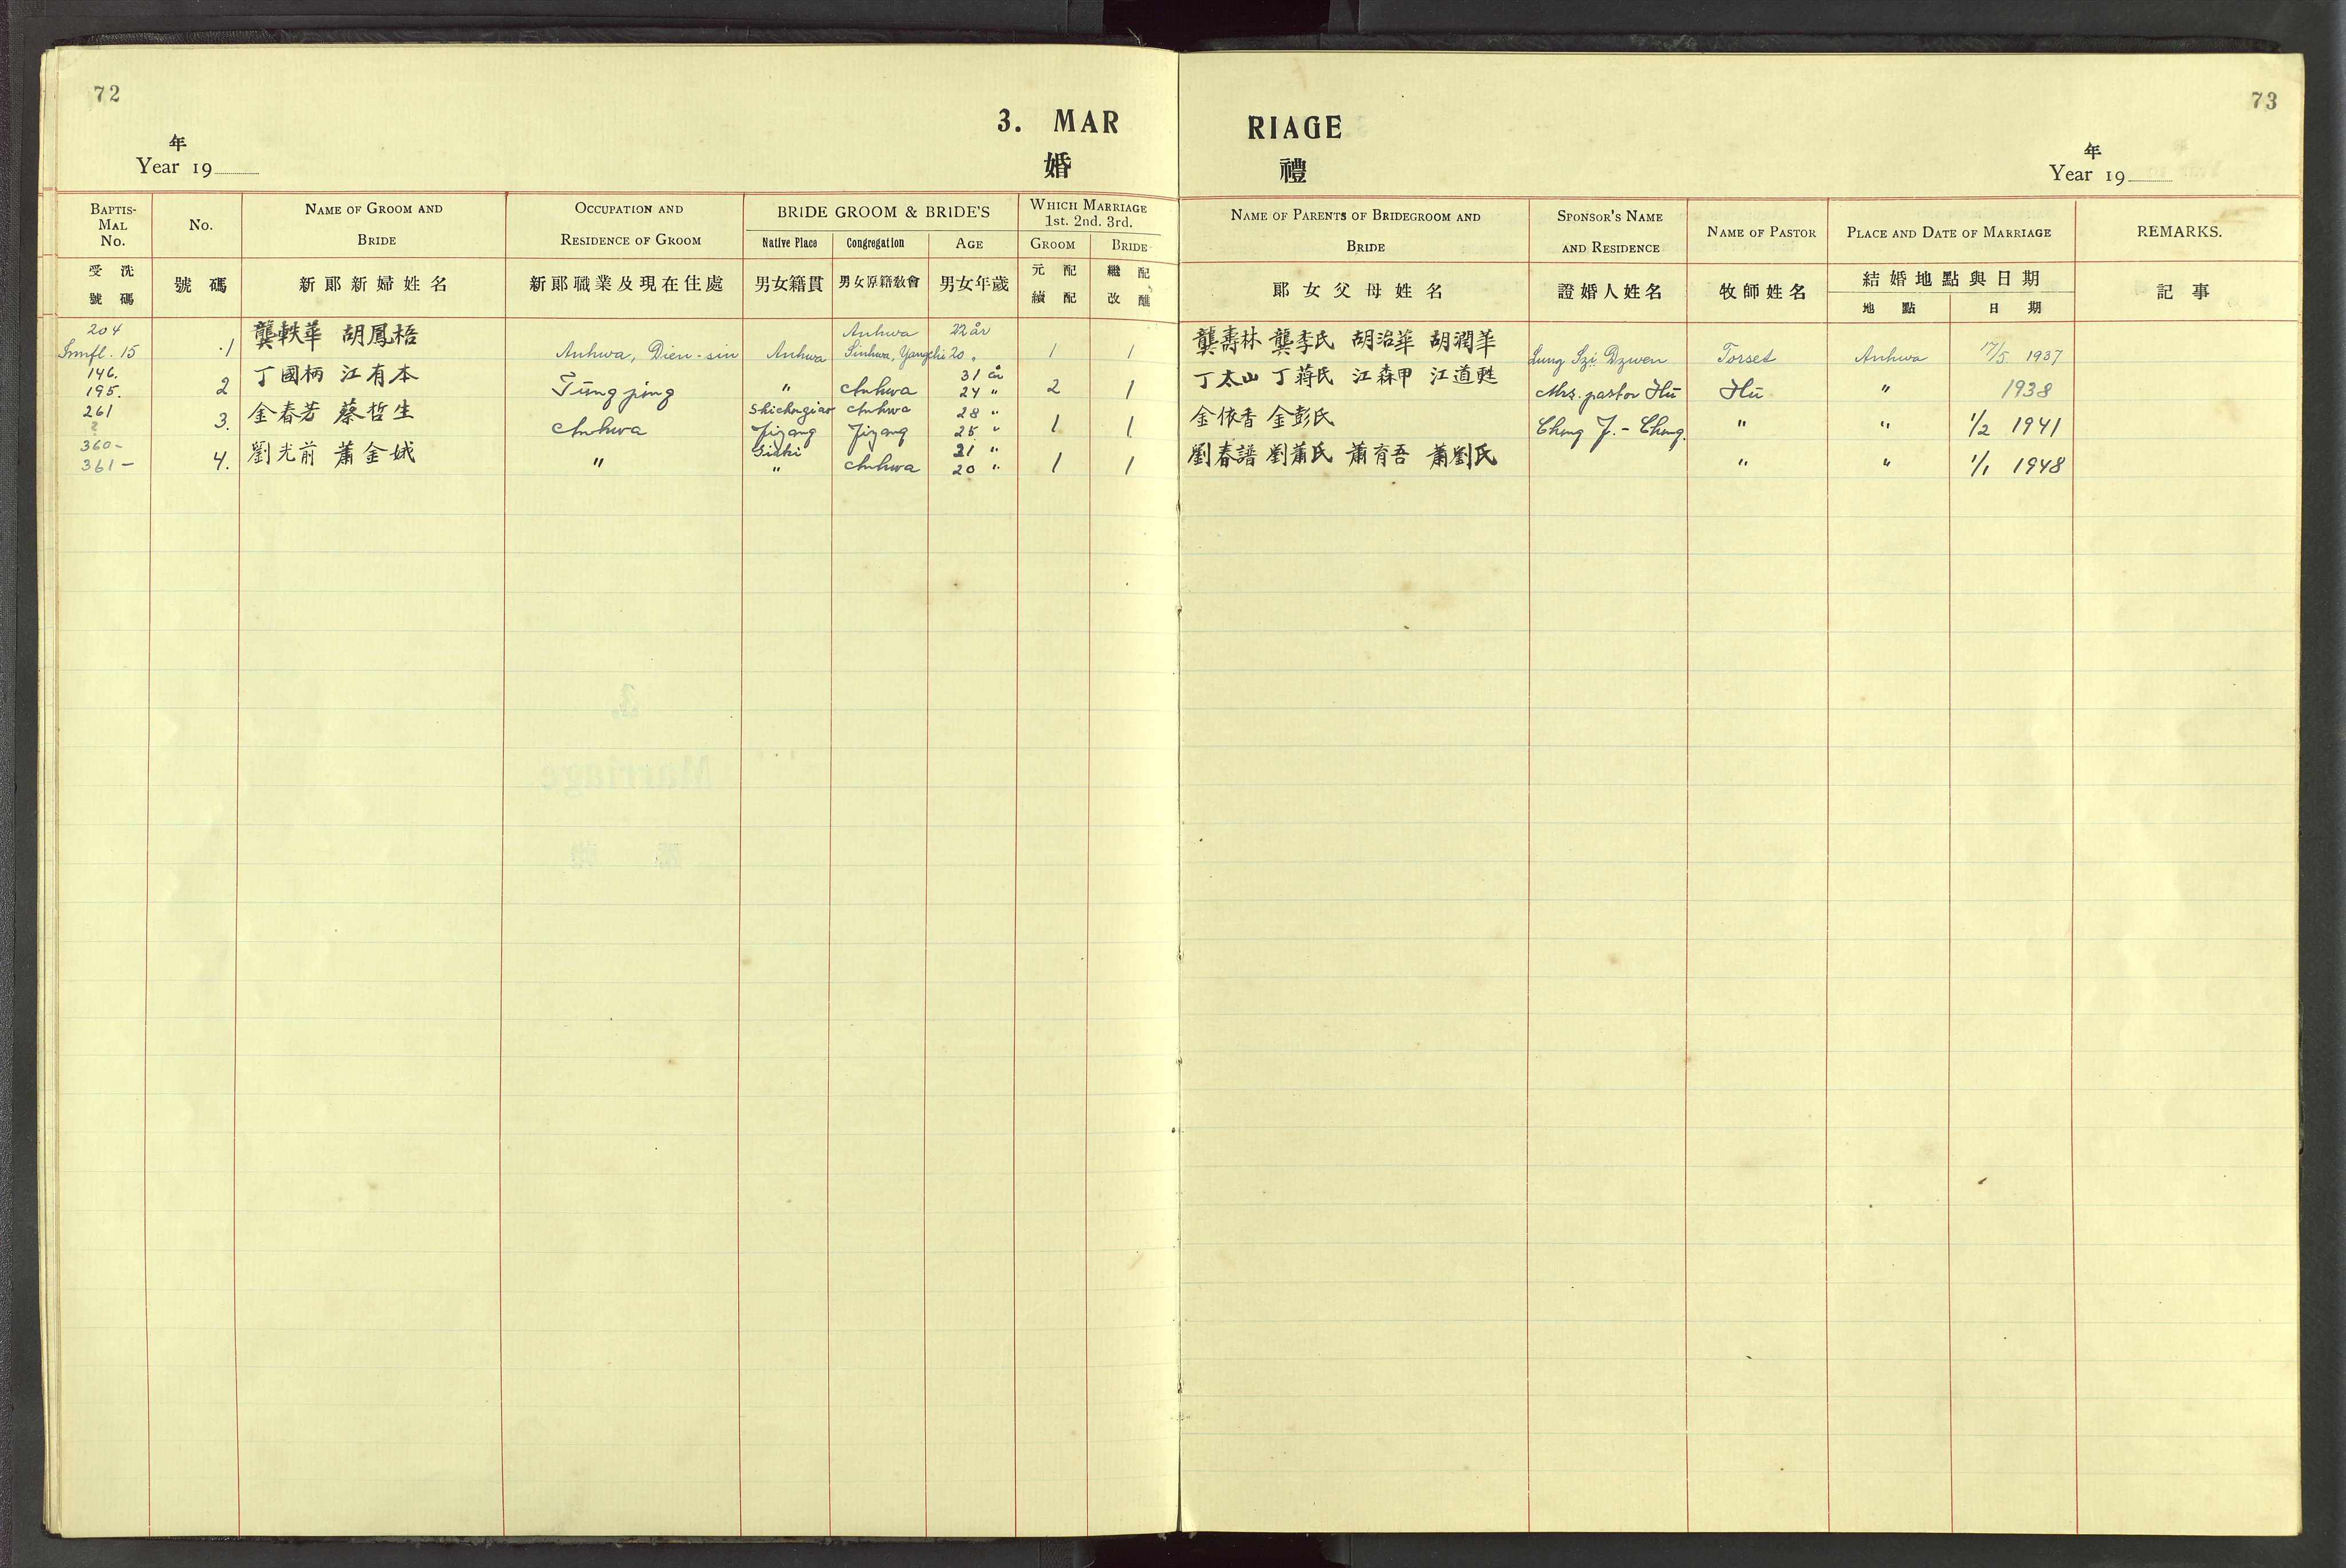 72
73
3. MAR
RIAGE
婚
禮
年
Year 19
年
Year 19
BAPTIS-
MAL
No.
No.
NAME OF GROOM AND
BRIDE
OCCUPATION AND
RESIDENCE OF GROOM
BRIDE GROOM & BRIDE'S
Native Place Congregation AGE
WHICH MARRIAGE
1st. 2nd. 3rd.
GROOM BRIDE
NAME OF PARENTS OF BRIDEGROOM AND
BRIDE
SPONSOR'S NAME
AND RESIDENCE
NAME OF PASTOR
PLACE AND DATE OF MARRIAGE
REMARKS.
受洗
號碼
號碼
新郞新婦姓名
新郞職業及現在住處
男女籍貫
男女原籍敎會
男女年歲
元配
續配
繼配
改醮
郞女父母姓名
證婚人姓名
牧師姓名
結婚地點與日期
地點
日期
記事
204 龔軼華 胡鳳梧 Anhwa 22 år 龔壽林 龔李氏 胡治華 胡潤華
Innfl. 15 1 Anhwa, Dien-sin Anhwa Sinhwa, Yangchi 20 " 1 1 Lung Szi Dzwen Torset Anhwa 17/5. 1937
146. 丁國柄 江有本 31 år 丁太山 丁蔣氏 江森甲 江道甦
195. 2 Tungping " Anhwa 24 " 2 1 Mrs. pastor Hu Hu " 1938
261 金春芳 蔡哲生 Anhwa 28 " 金依香 金彭氏
? 3. Anhwa Jizang Jizang 25 " 1 1 " " 1/2 1941
360- 劉光前 蕭金娥 21 " 劉春譜 劉蕭氏 蕭育吾 蕭劉氏
361- 4. " " Anhwa 20 " 1 1 " " 1/1 1948